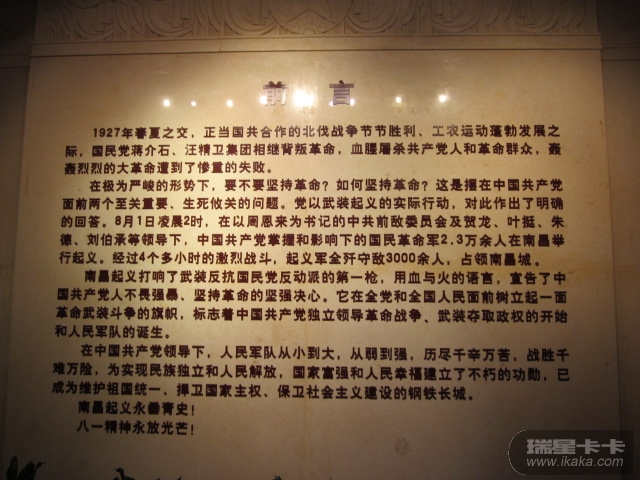 前言
1927年春夏之交，正当国共合作的北伐战争节节胜利、工农运动蓬勃发展之
际，国民党蒋介石、汪精卫集团相继背叛革命，血腥屠杀共产党人和革命群众，轰
轰烈烈的大革命遭到了惨重的失败。
在极为严峻的形势下，要不要坚持革命？如何坚持革命？这是摆在中国共产党
面前两个至关重要、生死攸关的问题。党以武装起义的实际行动，对此作出了明确
的回答。8月1日凌晨2时，在以周恩来为书记的中共前敌委员会及贺龙、叶挺、朱
德、刘伯承等领导下，中国共产党掌握和影响下的国民革命军2.3万余人在南昌举
行起义。经过4个多小时的激烈战斗，起义军全歼守敌3000余人，占领南昌城。
南昌起义打响了武装反抗国民党反动派的第一枪，用血与火的语言，宣告了中
国共产党人不畏强暴、坚持革命的坚强决心。它在全党和全国人民面前树立起一面
革命武装斗争的旗帜，标志着中国共产党独立领导革命战争、武装夺取政权的开始
和人民军队的诞生。
在中国共产党领导下，人民军队从小到大，从弱到强，历尽千辛万苦，战胜千
难万险，为实现民族独立和人民解放，国家富强和人民幸福建立了不朽的功勋，已
成为维护祖国统一、捍卫国家主权、保卫社会主义建设的钢铁长城。
南昌起义永垂青史！
八一精神永放光芒！
瑞星卡卡
www.ikaka.com